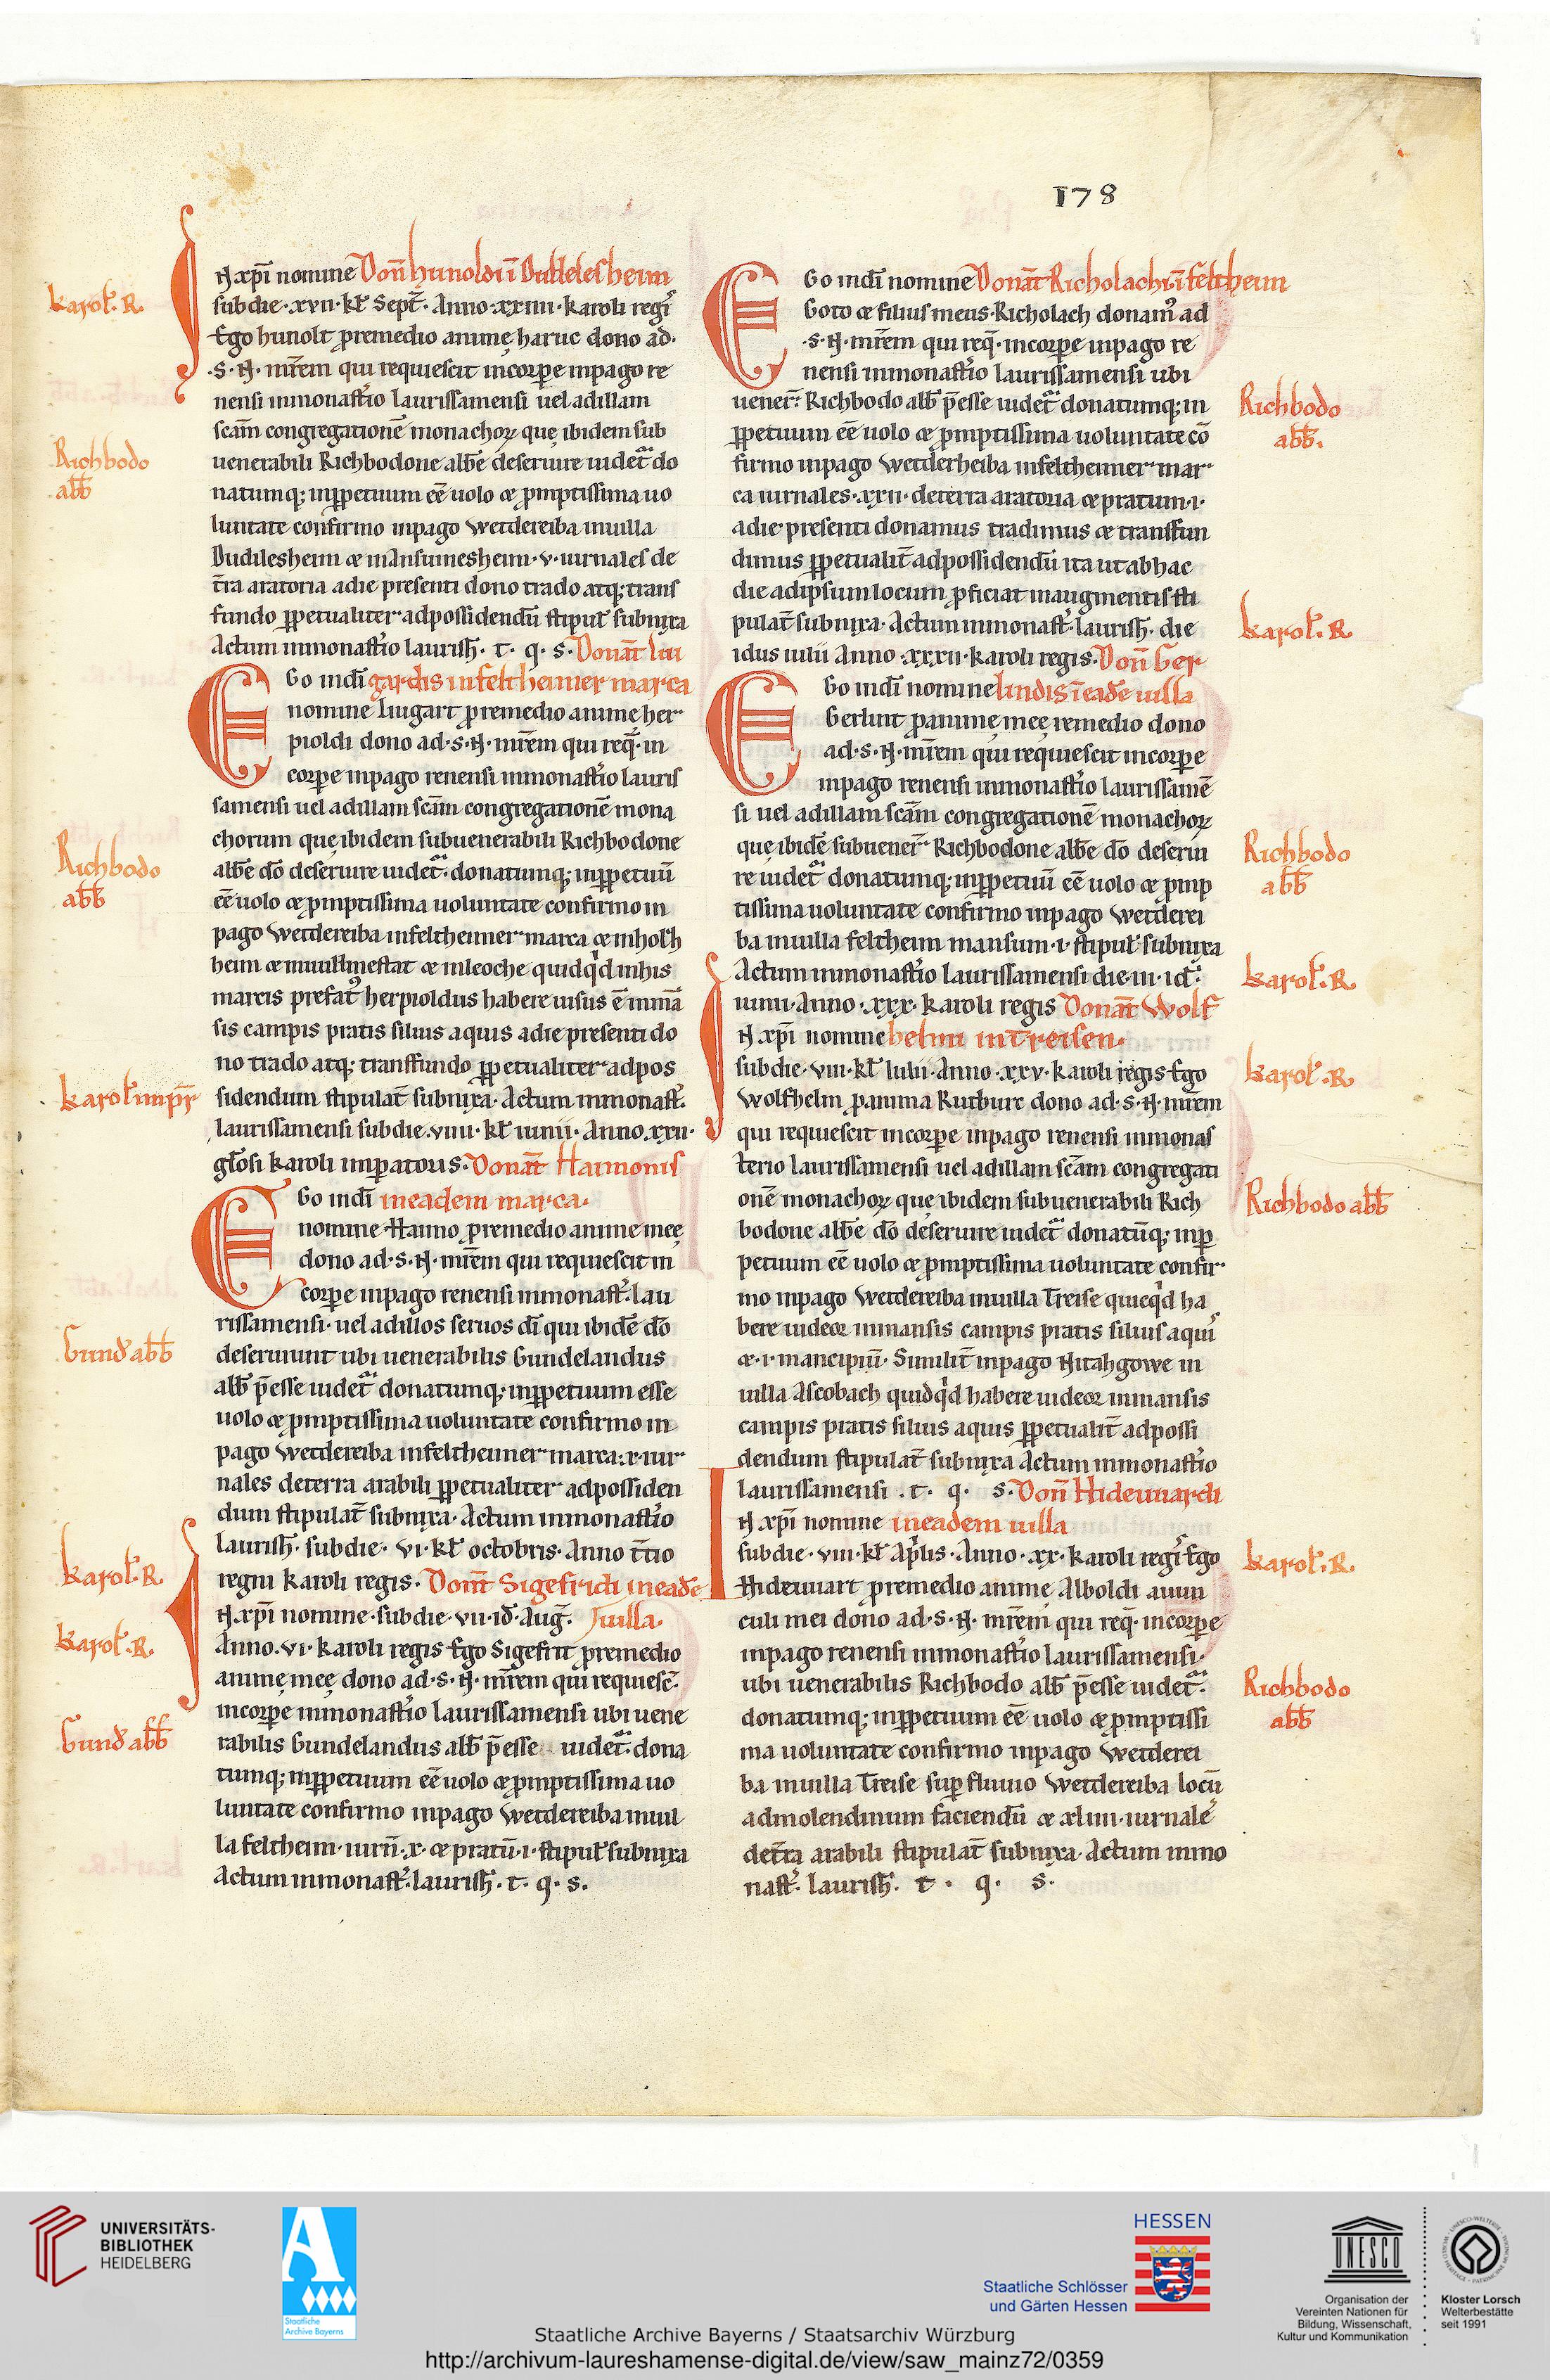 178
N xp̄i nomine Don̄ hunoldi ī Dudelesheim
sub die · xvii · kł Sept̄ · Anno · xxiiii · karoli regis
Ego hunolt p remedio animę haruc dono ad ·
· S · N · mr̄em qui requiescit in corpe in pago re
nensi in monast̄io laurissamensi uel ad illam
scām congregationē monachoꝝ quę ibidem sub
uenerabili Richbodone abb̄e deseruire uidet̄ do
natumq; in ppetuum eē uolo & pmptissima uo
luntate confirmo in pago Wetdereiba in uilla
Dudilesheim & in Ansuinesheim · v · iurnales de
t̄ra aratoria a die presenti dono trado atq; trans
fundo ppetualiter ad possidendū stipuł subnixa
Actum in monast̄io laurish̄ · t · q · s · Donat̄ liu
Go in dī gardis in feltheimer marca
nomine liugart p remedio animę her
pioldi dono ad · S · N · mr̄em qui req̄ · in
corpe in pago renensi in monast̄io lauris
samensi uel ad illam scām congregationē mona
chorum quę ibidem sub uenerabili Richbodone
abb̄e dō deseruire uidet̄ · donatumq; in ppetuū
eē uolo & pmptissima uoluntate confirmo in
pago Wetdereiba in feltheimer marca & in holtz
heim & in uullinestat & in leoche quidq̇d in his
marcis prefat̄ herpioldus habere uisus ē in mā
sis campis pratis siluis aquis a die presenti do
no trado atq; transfundo ppetualiter ad pos
sidendum stipulat̄ subnixa · Actum in monast̄ ·
laurissamensi sub die · viiii · kł iunii · Anno · xxii ·
gł̄osi karoli imperatoris · Donat̄ Hannonis
Go in dī in eadem marca ·
nomine Hanno p remedio anime meę
dono ad · S · N · mr̄em qui requiescit in
corpe in pago renensi in monast̄ · lau
rissamensi · uel ad illos seruos dī qui ibidē dō
deseruiunt ubi uenerabilis Gundelandus
abb̄ p̄esse uidet̄ donatumq; in ppetuum esse
uolo & pmptissima uoluntate confirmo in
pago Wetdereiba in feltheimer marca · x · iur
nales de terra arabili ppetualiter ad possiden
dum stipulat̄ subnixa · Actum in monast̄io
laurish̄ · sub die · vi · kł octobris · Anno t̄tio
regni karoli regis · Donat̄ Sigefridi in eadē
N xp̄i nomine · sub die · vii · id̄ · Aug̃ · uilla ·
Anno · vi · karoli regis Ego Sigefrit p remedio
animę meę dono ad · S · N · mr̄em qui requiesc̄ ·
in corpe in monast̄io laurissamensi ubi uene
rabilis Gundelandus abb̄ p̄esse uidet̄ · dona
tumq; in ppetuum eē uolo & pmptissima uo
luntate confirmo in pago Wetdereiba in uil
la feltheim · iurn̄ · x · & pratū · i · stipuł subnixa
Actum in monast̄ · laurish̄ · t · q · s ·
karoł · R ·
Richbodo
abb̄
Richbodo
abb̄
karoł imp̄r
Gund̄ abb̄
karoł · R ·
karoł · R ·
Gund̄ abb̄
Go in dī nomine Donat̄ Richolachi · ī feltheim
Goto & filius meus · Richolach donam' ad
· S · N · mr̄em qui req̄ · in corpe in pago re
nensi in monast̄io laurissamensi ubi
uener̄ · Richbodo abb̄ p̄esse uidet̄ donatumq; in
ppetuum eē uolo & pmptissima uoluntate cō
firmo in pago Wetderheiba in feltheimer mar
ca iurnales · xxii · de terra aratoria & pratum · i ·
a die presenti donamus tradimus & transfun
dimus ppetualit̄ ad possidendū ita ut ab hac
die ad ipsum locum pficiat in augmentis sti
pulat̄ subnixa · Actum in monast̄ · laurish̄ · die
idus iulii Anno · xxxii · karoli regis · Don̄ Ger
Go in dī nomine lindis ī eadē uilla
Gerlint p animę meę remedio dono
ad · S · N · mr̄em qui requiescit in corpe
in pago renensi in monast̄io laurissamē
si uel ad illam scām congregationē monachoꝝ
quę ibidē sub uener̄ Richbodone abb̄e dō deserui
re uidet̄ donatumq; in ppetuū eē uolo & pmp
tissima uoluntate confirmo in pago Wetderei
ba in uilla feltheim mansum · i · stipuł subnixa
Actum in monast̄io laurissamensi die · iii · id̄ ·
iunii · Anno · xxx · karoli regis Donat̄ Wolf
N xp̄i nomine helmi in treisen ·
sub die · viii · kł iulii · Anno · xxv · karoli regis Ego
Wolfhelm p anima Rutburc dono ad · S · N · mr̄em
qui requiescit in corpe in pago renensi in monas
terio laurissamensi uel ad illam scām congregati
onē monachoꝝ quę ibidem sub uenerabili Rich
bodone abb̄e dō deseruire uidet̄ donatūq; in p
petuum eē uolo & pmptissima uoluntate confir
mo in pago Wetdereiba in uilla Treise quicq̇d ha
bere uideor in mansis campis pratis siluis aquis
& · i · mancipiū · Similit̄ in pago Nitahgowe in
uilla Ascobach quidq̇d habere uideor in mansis
campis pratis siluis aquis ppetualit̄ ad possi
dendum stipulat̄ subnixa Actum in monast̄io
laurissamensi · t · q · s · Don̄ Hidewardi
N xp̄i nomine in eadem uilla
sub die · viii · kł Ap̄lis · Anno · xx · karoli regis Ego
Hidewart p remedio anime Alboldi auun
culi mei dono ad · S · N · mr̄em qui req̄ · in corpe
in pago renensi in monast̄io laurissamensi ·
ubi uenerabilis Richbodo abb̄ p̄esse uidet̄ ·
donatumq; in ppetuum eē uolo & pmptissi
ma uoluntate confirmo in pago Wetderei
ba in uilla Treise sup fluuio Wetdereiba locū
ad molendinum faciendū & xliiii · iurnales
de t̄ra arabili stipulat̄ subnixa · Actum in mo
nast̄ · laurish̄ · t · q · s ·
Richbodo
abb̄ ·
karoł · R ·
Richbodo
abb̄
karoł · R ·
karoł · R ·
Richbodo abb̄
karoł · R ·
Richbodo
abb̄
UNIVERSITÄTS-
BIBLIOTHEK
HEIDELBERG
Staatliche
Archive Bayerns
HESSEN
Staatliche Schlösser
und Gärten Hessen
UNESCO
Organisation der
Vereinten Nationen für
Bildung, Wissenschaft,
Kultur und Kommunikation
Kloster Lorsch
Welterbestätte
seit 1991
Staatliche Archive Bayerns / Staatsarchiv Würzburg
http://archivum-laureshamense-digital.de/view/saw_mainz72/0359